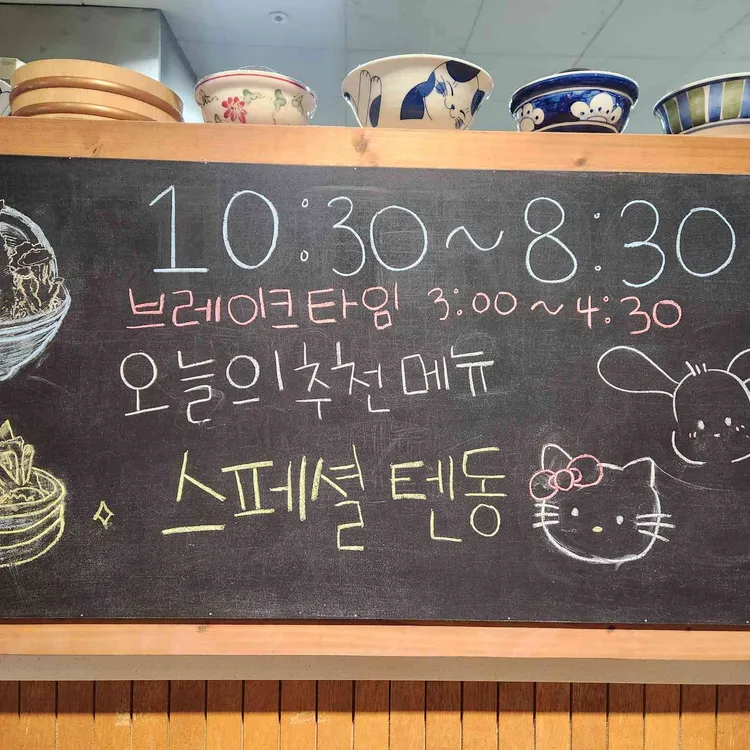 10:30~8:30
브레이크타임 3:00~4:30
오늘의 추천 메뉴
스페셜 텐동